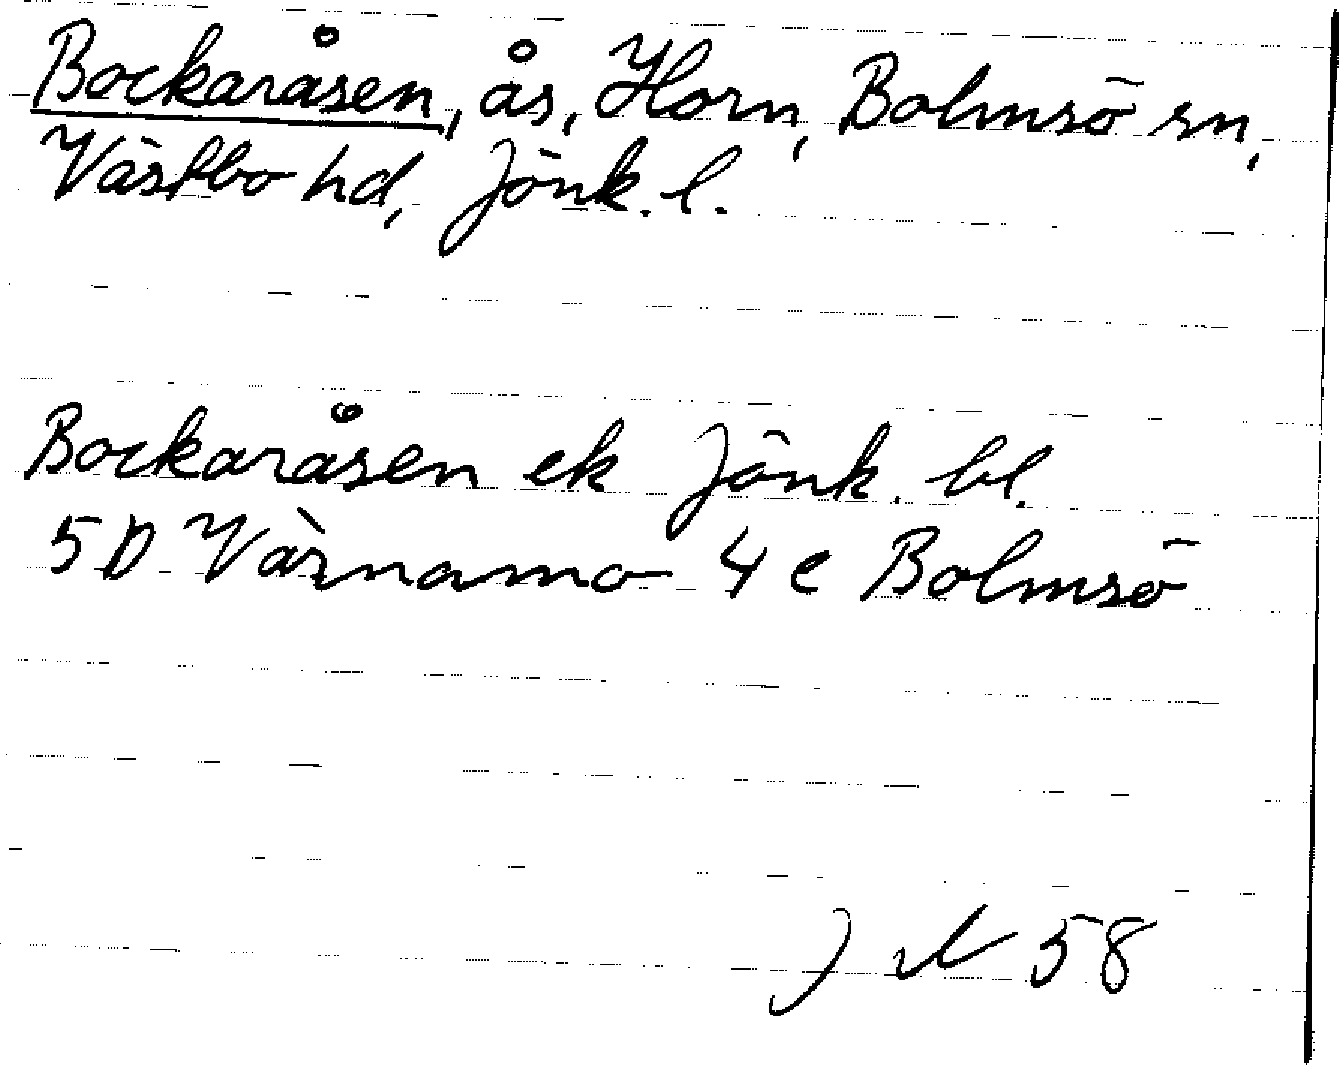 Bockaråsen, ås, Horn, Bolmsö sn,
Västbo hd, Jönk. l.
Bockaråsen ek Jönk. bl.
5D Värnamo 4 e Bolmsö
J N 58